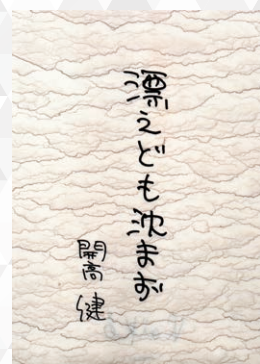 漂えども沈まず
開高 健